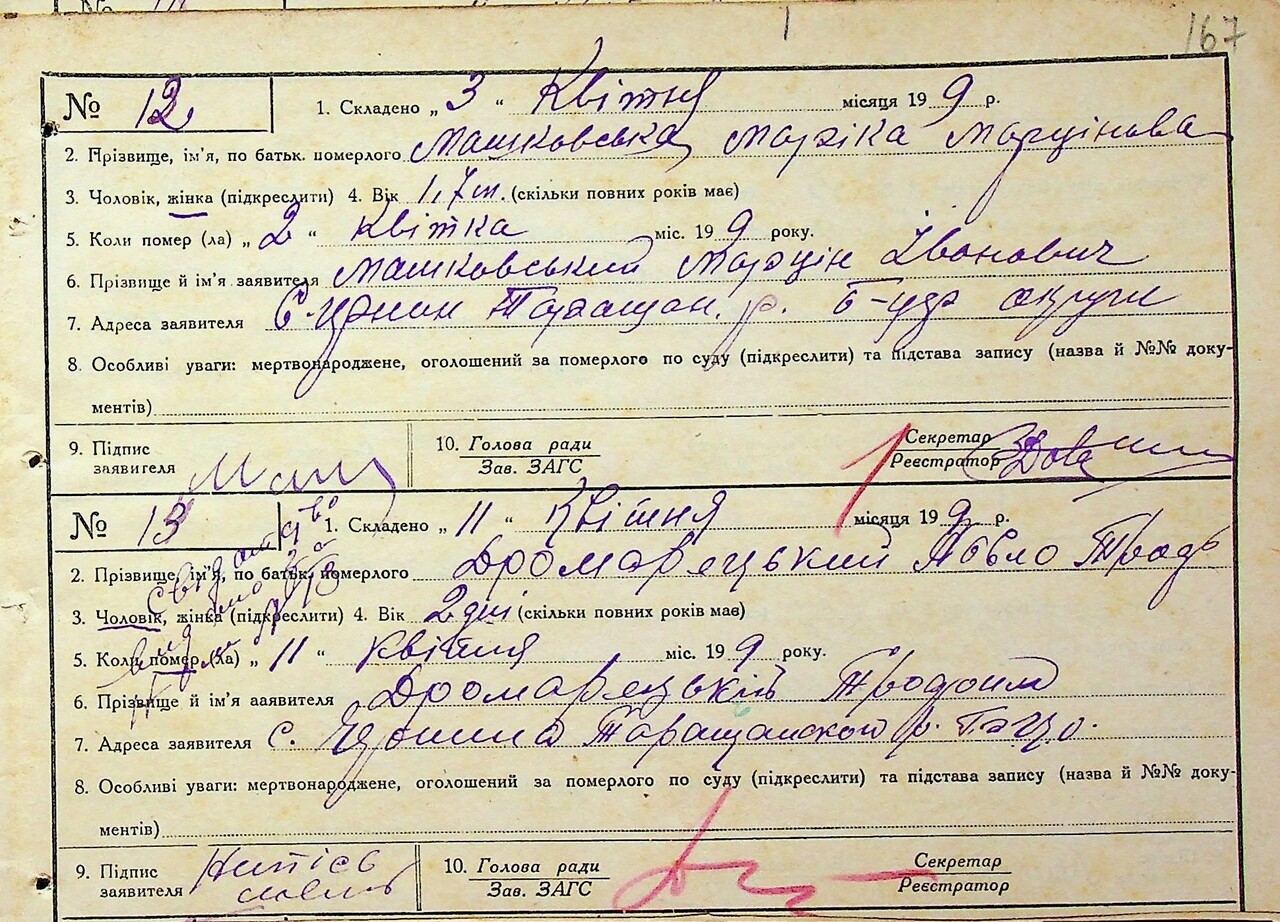 167
№ 12 1. Складено „ 3 “ Квітня місяця 19 9 р.
2. Прізвище, ім'я, по батьк. померлого Машковська Марціка Марцінова
3. Чоловік, жінка (підкреслити) 4. Вік 1,7 м. (скільки повних років має)
5. Коли помер (ла) „ 2 “ Квітня міс. 19 9 року.
6. Прізвище й ім'я заявителя Машковський Марцін Іванович
7. Адреса заявителя Таращан. р. Б-цер округи
8. Особливі уваги: мертвонароджене, оголошений за померлого по суду (підкреслити) та підстава запису (назва й №№ доку-
ментів)
9. Підпис заявителя 10. Голова ради Зав. ЗАГС Секретар Реєстратор
№ 13 1. Складено „ 11 “ Квітня місяця 19 9 р.
2. Прізвище, ім'я, по батьк. померлого Дромарецький Павло
3. Чоловік, жінка (підкреслити) 4. Вік 2 дні (скільки повних років має)
5. Коли помер (ла) „ 11 “ квітня міс. 19 9 року.
6. Прізвище й ім'я заявителя Дромарецькій
7. Адреса заявителя с. Таращанской р.
8. Особливі уваги: мертвонароджене, оголошений за померлого по суду (підкреслити) та підстава запису (назва й №№ доку-
ментів)
9. Підпис заявителя 10. Голова ради Зав. ЗАГС Секретар Реєстратор